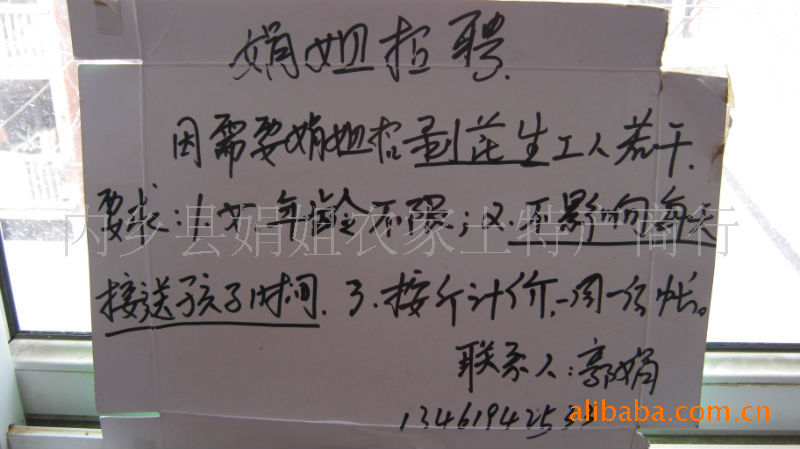 娟姐招聘
因需要娟姐招剥花生工人若干.
要求:1.女.年龄不限;2.不影响每天
接送孩子时间.3.按斤计价,一周一结帐。
联系人:郭娟
内乡县娟姐农家土特产商行
alibaba.com.cn